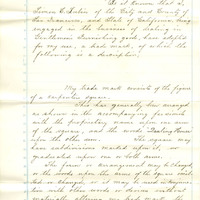 Be it known that I,
of the City and County of
San Francisco, and State of California, am
engaged in the business of dealing in
Gentlemen's Furnishing goods, have adopted
for my use, a trade mark, of which the
following is a description.
My trade mark consists of the figure
of a carpenter square.
This has generally been arranged
as shown in the accompanying facsimile
with the proprietary name upon one arm
of the square, and the words
upon the other arm. The square may
have subdivisions marked upon it, or
graduated upon one or both arms.
The form or arrangement may be changed
or the words upon the arms of the square
or changed, or it may be used in
with other words or devices without
materially altering my trade mark, the